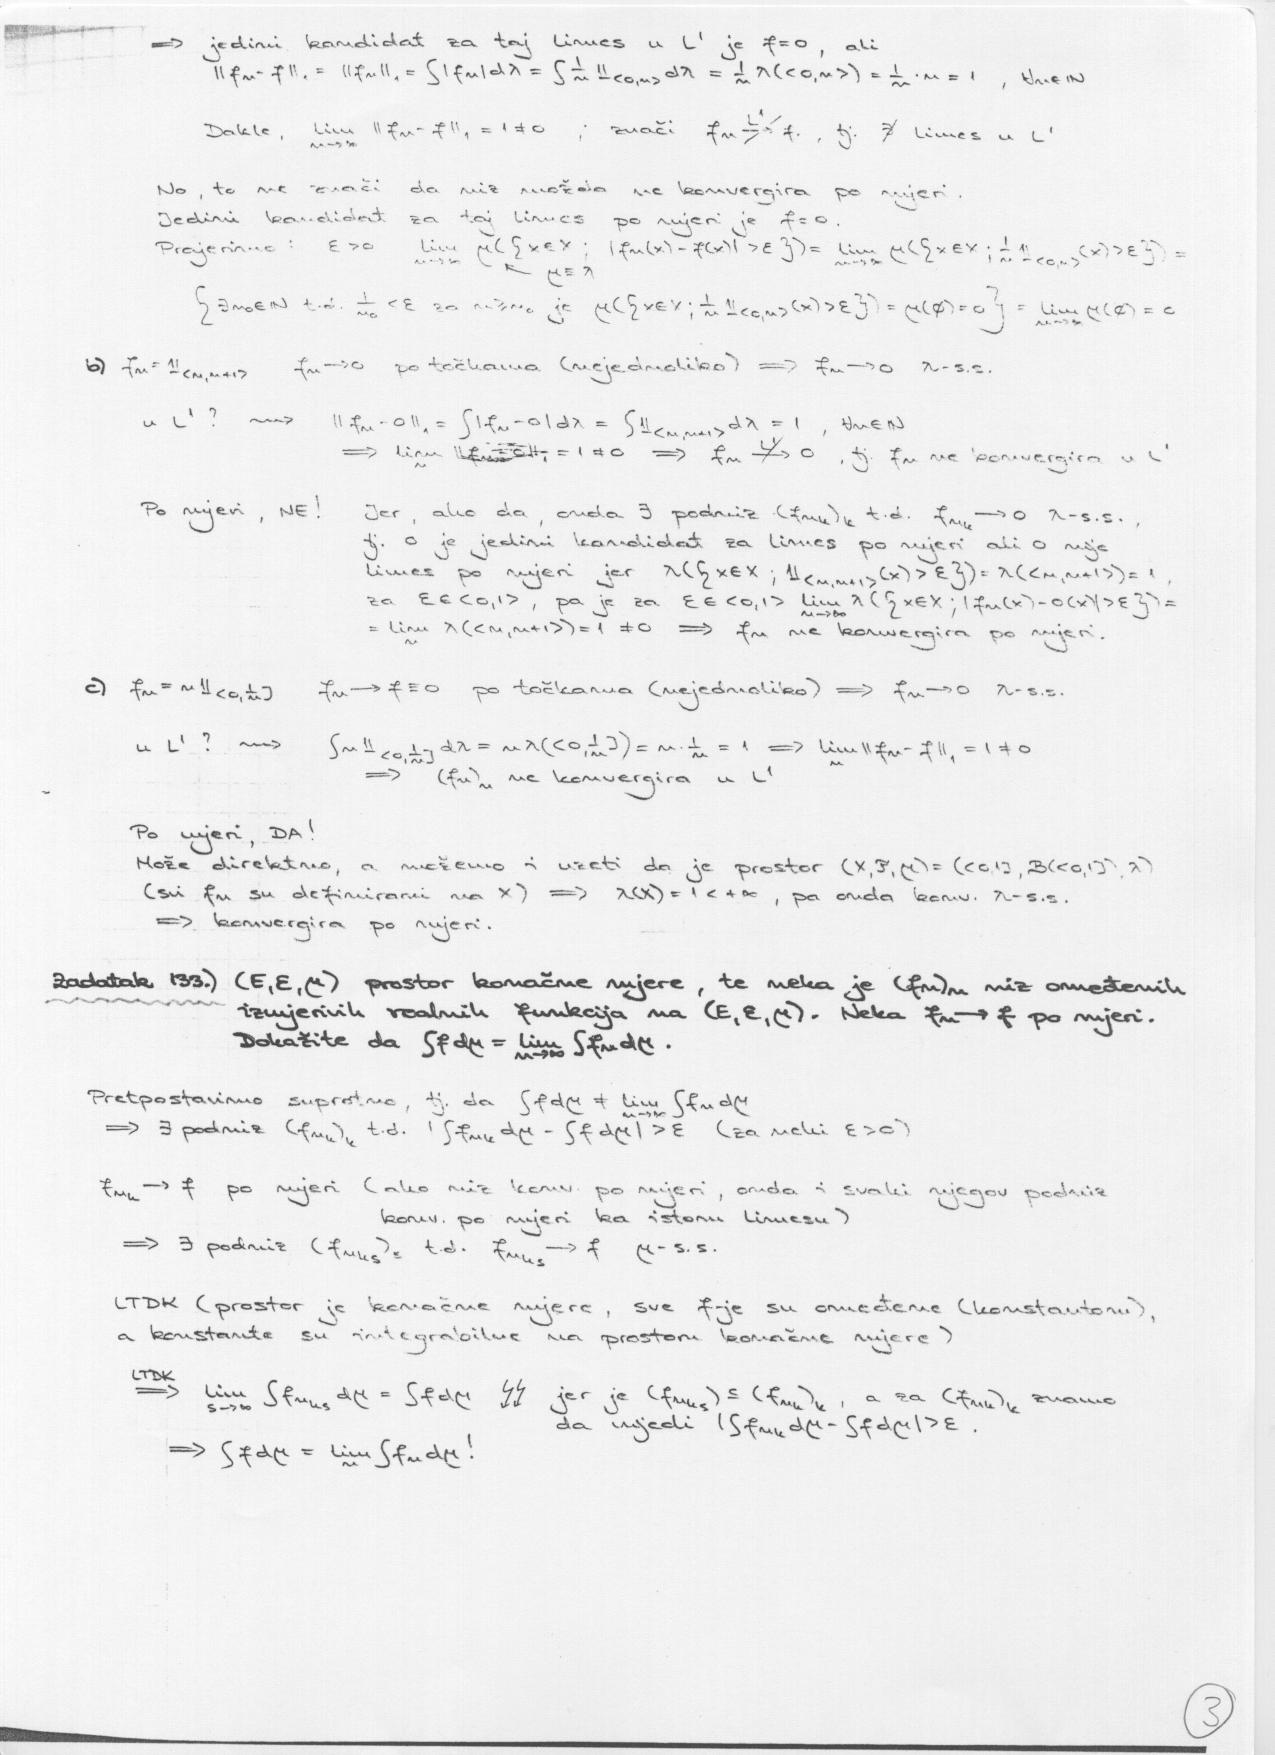 ⟹ jedini kandidat za taj limes u L¹ je f=0, ali
||fₙ-f||₁ = ||fₙ||₁ = ∫|fₙ|dλ = ∫ 1/n 𝟙_{<0,n>} dλ = 1/n λ(<0,n>) = 1/n · n = 1 , ∀n∈ℕ
Dakle, lim_{n→∞} ||fₙ-f||₁ = 1 ≠ 0 ; znači fₙ ↛^{L¹} f , tj. ∄ limes u L¹
No, to ne znači da niz možda ne konvergira po mjeri.
Jedini kandidat za taj limes po mjeri je f=0.
Provjerimo: ε>0 lim_{n→∞} μ({x∈X ; |fₙ(x)-f(x)|>ε}) = lim_{n→∞} μ({x∈X ; 1/n 𝟙_{<0,n>}(x)>ε}) =
↖ μ≡λ
{∃n₀∈ℕ t.d. 1/n₀ < ε za n≥n₀ je μ({x∈X ; 1/n 𝟙_{<0,n>}(x)>ε}) = μ(∅)=0} = lim_{n→∞} μ(∅) = 0
b) fₙ = 𝟙_{<n,n+1>} fₙ→0 po točkama (nejednoliko) ⟹ fₙ→0 λ-s.s.
u L¹ ? ⇝ ||fₙ-0||₁ = ∫|fₙ-0|dλ = ∫𝟙_{<n,n+1>}dλ = 1 , ∀n∈ℕ
⟹ lim_n ||fₙ-0||₁ = 1 ≠ 0 ⟹ fₙ ↛^{L¹} 0 , tj. fₙ ne konvergira u L¹
Po mjeri, NE! Jer, ako da, onda ∃ podniz (f_{n_k})_k t.d. f_{n_k} → 0 λ-s.s.,
tj. 0 je jedini kandidat za limes po mjeri ali 0 nije
limes po mjeri jer λ({x∈X ; 𝟙_{<n,n+1>}(x)>ε}) = λ(<n,n+1>) = 1,
za ε∈<0,1>, pa je za ε∈<0,1> lim_{n→∞} λ({x∈X ; |fₙ(x)-0(x)|>ε}) =
= lim_n λ(<n,n+1>) = 1 ≠ 0 ⟹ fₙ ne konvergira po mjeri.
c) fₙ = n𝟙_{<0,1/n]} fₙ→f≡0 po točkama (nejednoliko) ⟹ fₙ→0 λ-s.s.
u L¹ ? ⇝ ∫n𝟙_{<0,1/n]}dλ = nλ(<0,1/n]) = n·1/n = 1 ⟹ lim_n ||fₙ-f||₁ = 1 ≠ 0
⟹ (fₙ)ₙ ne konvergira u L¹
Po mjeri, DA!
Može direktno, a možemo i uzeti da je prostor (X,F,μ) = (<0,1], B(<0,1]), λ)
(svi fₙ su definirani na X) ⟹ λ(X)=1<+∞, pa onda konv. λ-s.s.
⟹ konvergira po mjeri.
Zadatak 133.) (E,ℰ,μ) prostor konačne mjere, te neka je (fₙ)ₙ niz omeđenih
izmjerivih realnih funkcija na (E,ℰ,μ). Neka fₙ→f po mjeri.
Dokažite da ∫fdμ = lim_{n→∞} ∫fₙdμ.
Pretpostavimo suprotno, tj. da ∫fdμ ≠ lim_{n→∞} ∫fₙdμ
⟹ ∃ podniz (f_{n_k})_k t.d. |∫f_{n_k}dμ - ∫fdμ|>ε (za neki ε>0)
f_{n_k} → f po mjeri (ako niz konv. po mjeri, onda i svaki njegov podniz
konv. po mjeri ka istom limesu)
⟹ ∃ podniz (f_{n_{k_s}})_s t.d. f_{n_{k_s}} → f μ-s.s.
LTDK (prostor je konačne mjere, sve f-je su omeđene (konstantom),
a konstante su integrabilne na prostoru konačne mjere)
⟹^{LTDK} lim_{s→∞} ∫f_{n_{k_s}}dμ = ∫fdμ ↯↯ jer je (f_{n_{k_s}}) ⊆ (f_{n_k})_k, a za (f_{n_k})_k znamo
da vrijedi |∫f_{n_k}dμ - ∫fdμ|>ε.
⟹ ∫fdμ = lim_n ∫fₙdμ!
3